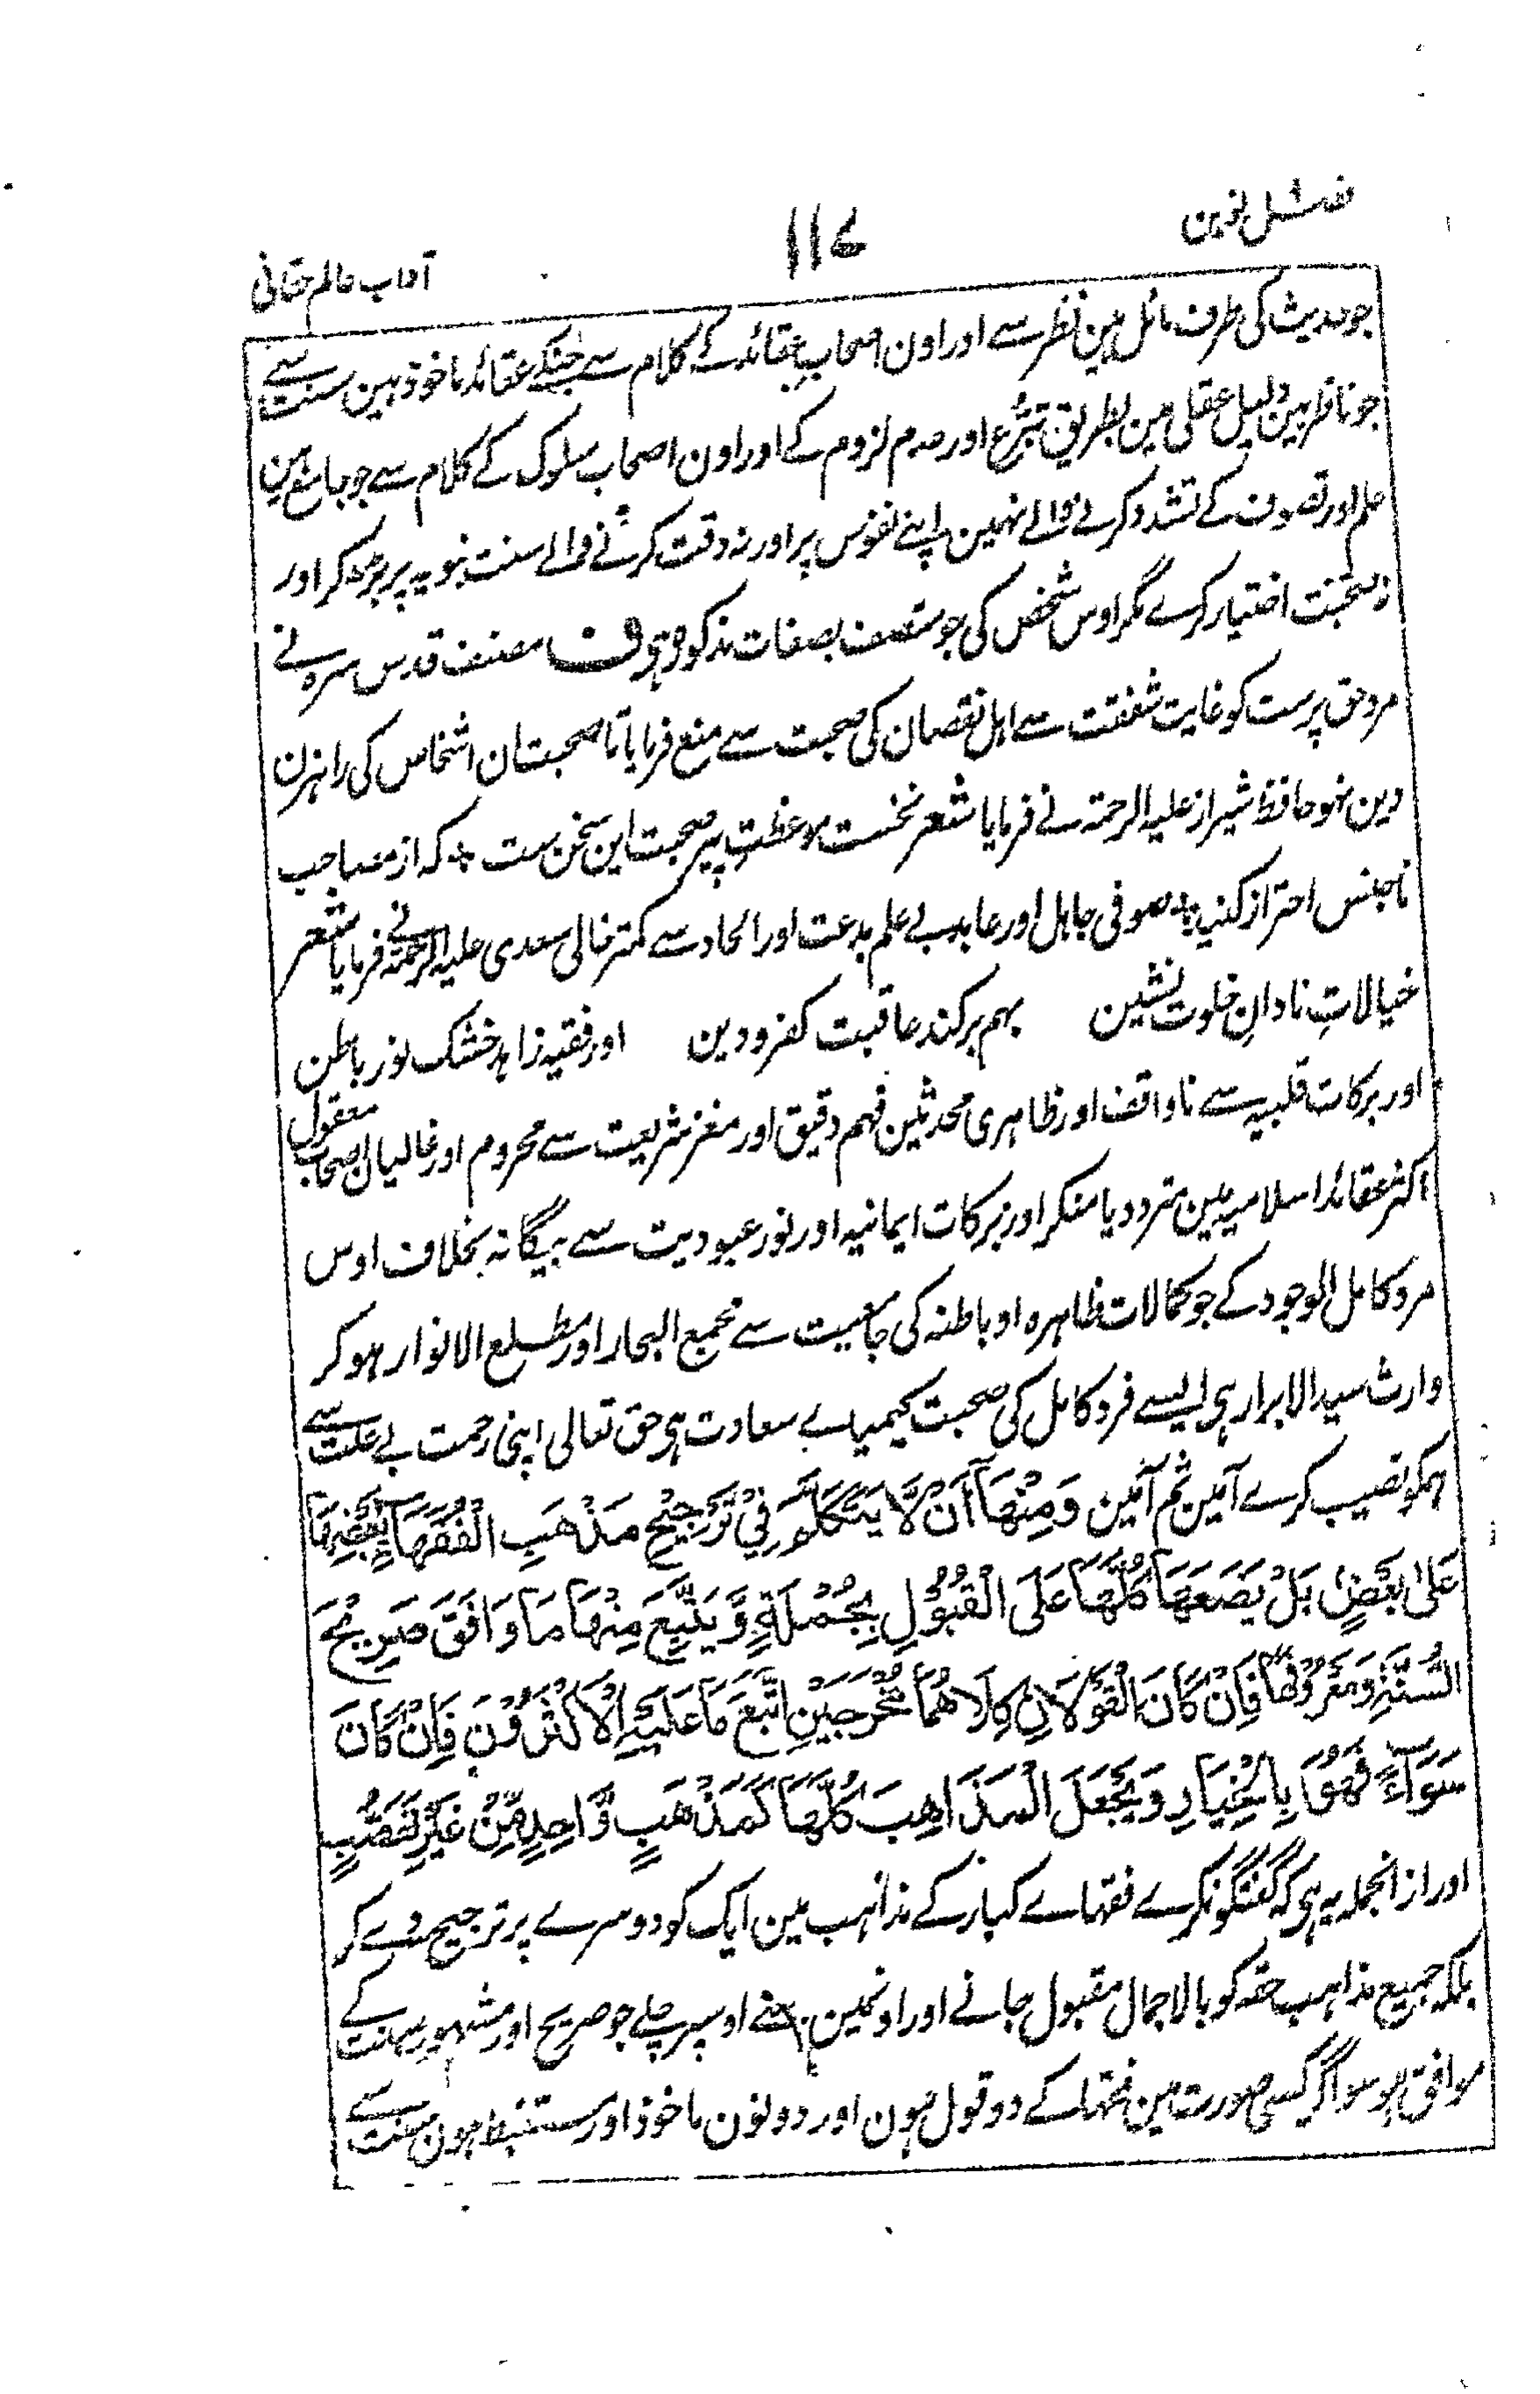 فصل نوین
۱۱۷
آداب عالم حقانی
جو حدیث کی طرف مائل ہین نظر سے اور اون اصحاب عقائد کے کلام سے جنکے عقائد ماخوذ ہین سنت سے
جو ناظر ہین دلیل عقلی مین بطریق تبرُّع اور عدم لزوم کے اور اون اصحاب سلوک کے کلام سے جو جامع ہین
علم اور تصوف کے تشدد کرنے والے نہین اپنے نفوس پر اور نہ دقت کرنے والے سنت نبویہ پر بڑھ کر اور
نہ صحبت اختیار کرے مگر اوس شخص کی جو متصف بصفات مذکورہ ہی ف مصنف قدس سرہ نے
مرد حق پرست کو غایت شفقت سے اہل نقصان کی صحبت سے منع فرمایا تا صحبت ان اشخاص کی راہزن
دین نہو حافظ شیراز علیہ الرحمۃ نے فرمایا شعر نخست موعظتِ پیر صحبت این سخن ست ٭ کہ از مصاحب
ناجنس احتراز کنید ٭ صوفی جاہل اور عابد بے علم بدعت اور الحاد سے کمتر خالی سعدی علیہ الرحمۃ نے فرمایا شعر
خیالاتِ نادانِ خلوت نشین بہم بر کند عاقبت کفر و دین اور فقیہ زاہد خشک نور باطن
اور برکات قلبیہ سے ناواقف اور ظاہری محدثین فہم دقیق اور مغز شریعت سے محروم اور غالیان اصحاب معقول
اکثر عقائد اسلامیہ مین متردد یا منکر اور برکات ایمانیہ اور نور عبودیت سے بیگانہ بخلاف اوس
مرد کامل الوجود کے جو کمالات ظاہرہ او باطنہ کی جامعیت سے مجمع البحار اور مطلع الانوار ہو کر
وارث سید الابرار ہی ایسے فرد کامل کی صحبت کیمیاے سعادت ہی حق تعالی اپنی رحمت بے علت سے
ہمکو نصیب کرے آمین ثم آمین وَمِنْهَا آنْ لَّا يَتَكَلَّمَ فِيْ تَرْجِيْحِ مَذْهَبِ الْفُقَهَآءِ بَعْضِهَا
عَلٰى بَعْضٍ بَلْ يَضَعُهَا كُلَّهَا عَلَى الْقَبُوْلِ بِجُمْلَةٍ وَّيَتَّبِعُ مِنْهَا مَا وَافَقَ صَرِيْحَ
السُّنَّةِ وَمَعْرُوْفَهَا فَاِنْ كَانَ الْقَوْلَانِ كِلَاهُمَا مُخَرَّجَيْنِ اتَّبَعَ مَا عَلَيْهِ الْاَكْثَرُوْنَ فَاِنْ كَانَ
سَوَآءً فَهُوَ بِالْخِيَارِ وَيَجْعَلُ الْمَذَاهِبَ كُلَّهَا كَمَذْهَبٍ وَّاحِدٍ مِّنْ غَيْرِ تَعَصُّبٍ
اور از انجملہ یہ ہی کہ گفتگو نکرے فقہاے کبار کے مذاہب مین ایک کو دوسرے پر ترجیح دے کر
بلکہ جمیع مذاہب حقہ کو بالاجمال مقبول جانے اور اونمین سے اوسپر چلے جو صریح اور مشہور سنت کے
موافق ہو سو اگر کسی صورت مین فقہا کے دو قول ہون اور دونون ماخوذ اور مستنبط ہون سنت سے